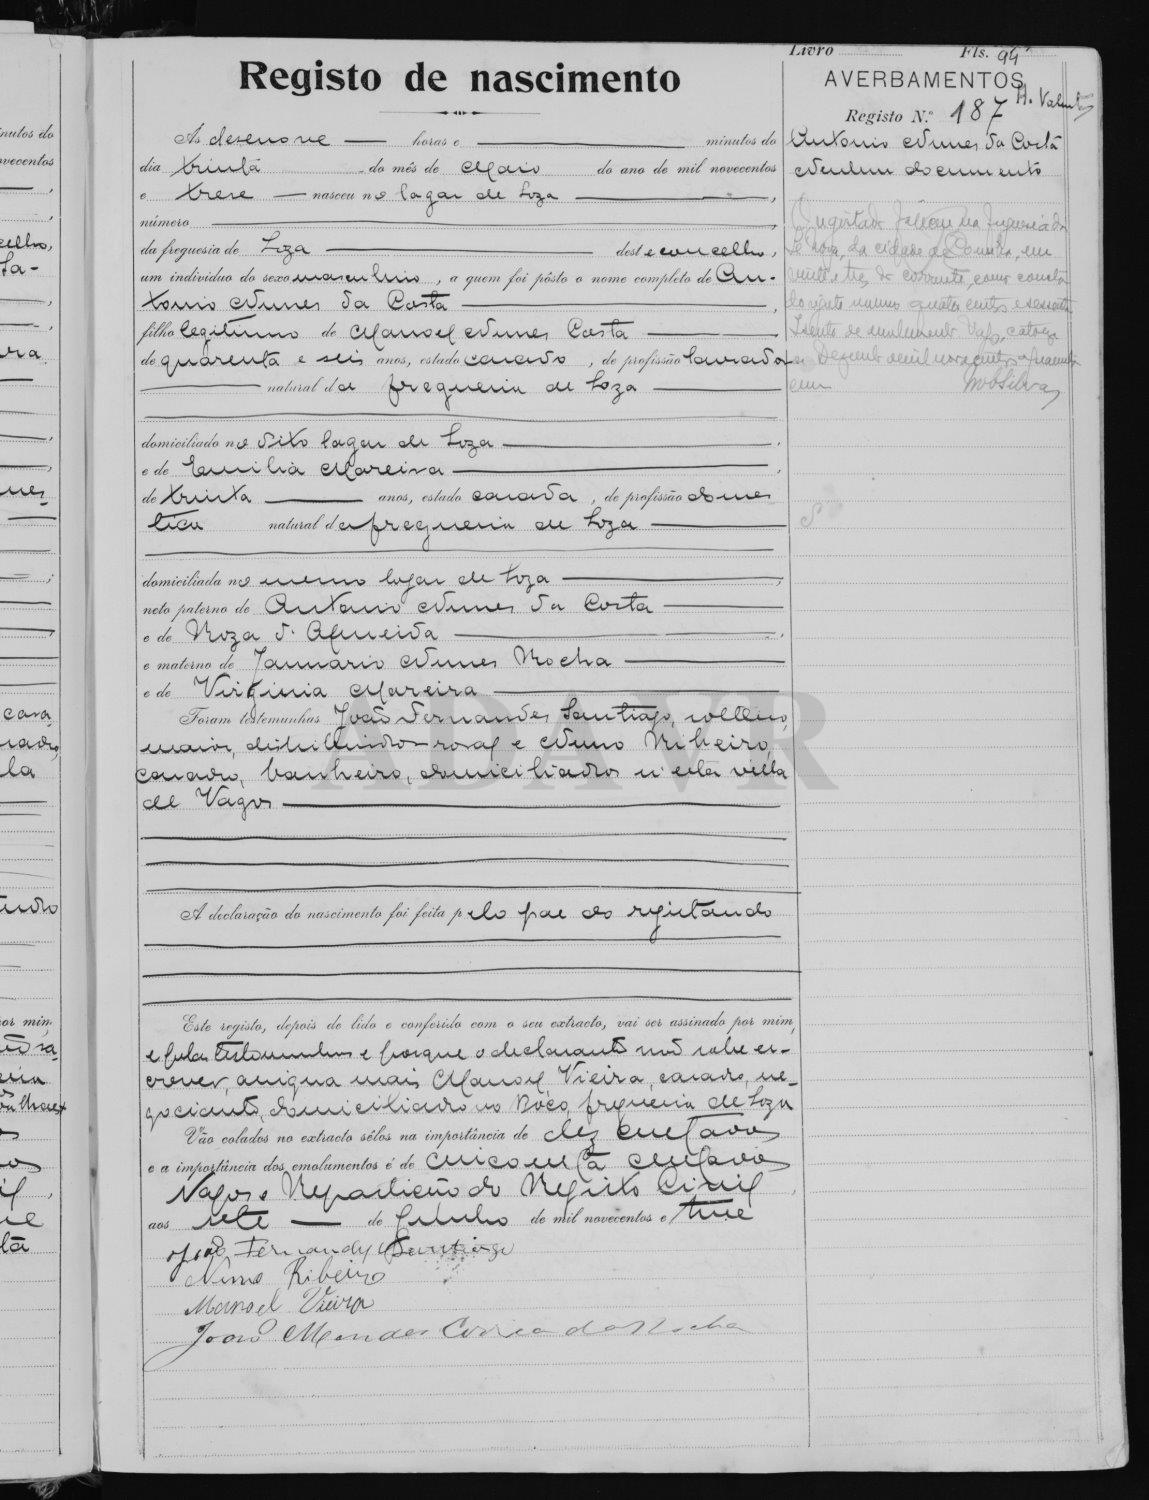 Livro Fls. 94
Registo de nascimento
AVERBAMENTOS
Registo N.º 187
Ás desenove horas e minutos do
dia trinta do mês de Maio do ano de mil novecentos
e trese nasceu no lagar de Soza
número
da freguesia de Soza deste concelho,
um individuo do sexo masculino, a quem foi pôsto o nome completo de An-
tonio Nunes da Costa
filho legitimo de Manoel Nunes Costa
de quarenta e seis anos, estado casado, de profissão lavrador
natural da freguesia de Soza
domiciliado no dito lagar de Soza
e de Emilia Moreira
de trinta anos, estado casada, de profissão domes
tica natural da freguesia de Soza
domiciliada no mesmo logar de Soza
neto paterno de Antonio Nunes da Costa
e de Roza d'Almeida
e materno de Januario Nunes Rocha
e de Virginia Moreira
Foram testemunhas João Fernandes Santiago, solteiro,
maior, distribuidor rural e Nuno Ribeiro,
casado, banheiro, domiciliados n'esta villa
de Vagos
A declaração do nascimento foi feita pelo pae do registando
Este registo, depois de lido e conferido com o seu extracto, vai ser assinado por mim,
e pelas testemunhas e porque o declarante não sabe es-
crever, assigna mais Manoel Vieira, casado, ne-
gociante, domiciliado no Bôco, freguesia de Soza
Vão colados no extracto sêlos na importância de dez centavos
e a importância dos emolumentos é de cincoenta centavos
Vagos e Repartição do Registo Civil
aos sete de Junho de mil novecentos e trese
João Fernandes Santiago
Nuno Ribeiro
Manoel Vieira
João Mendes Correa da Rocha
Antonio Nunes da Costa
Nenhum documento
O registado faleceu na freguesia da
Sé Nova, da cidade de Coimbra, em
vinte e tres do corrente, como consta
do registo numero quatrocentos e sessenta
Vagos, catorze
de Dezembro de mil novecentos e quarenta
e um
ADAVR